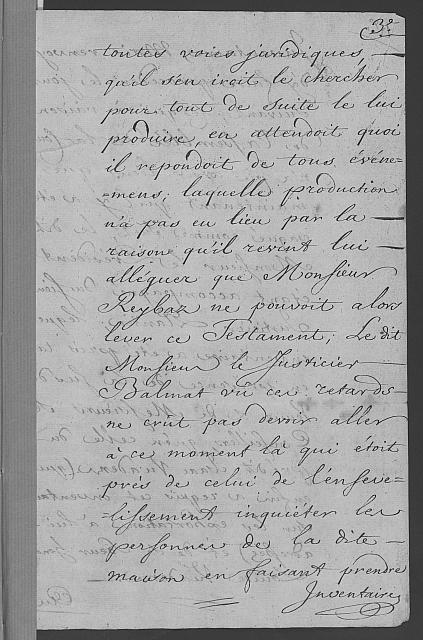 3.e
toutes voies juridiques,
qu'il s'en iroit le chercher
pour tout de suite le lui
produire en attendoit quoi
il repondoit de tous événe=
=mens; laquelle production
n'a pas eu lieu par la
raison qu'il revint lui
alléguer que Monsieur
Reybaz ne pouvoit alors
lever ce Testament; Le dit
Monsieur le Justicier
Balmat vû ces retards
ne crût pas devoir aller
à ce moment là qui étoit
près de celui de l'enseve=
=lissement inquiéter les
personnes de la dite
maison en faisant prendre
Inventaire